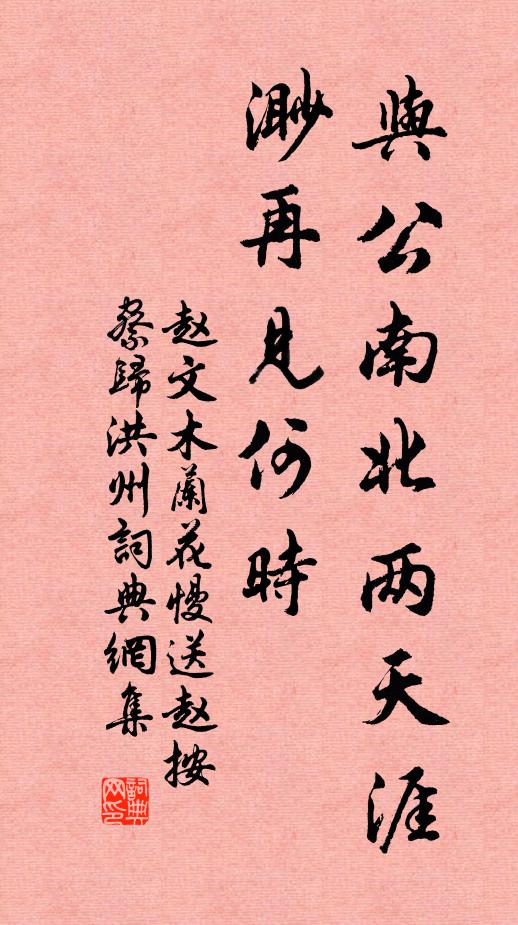 與公南北两天涯
渺再見何時
赵文木蘭花慢送赵按
察歸洪州詞典網集
詞典
网印